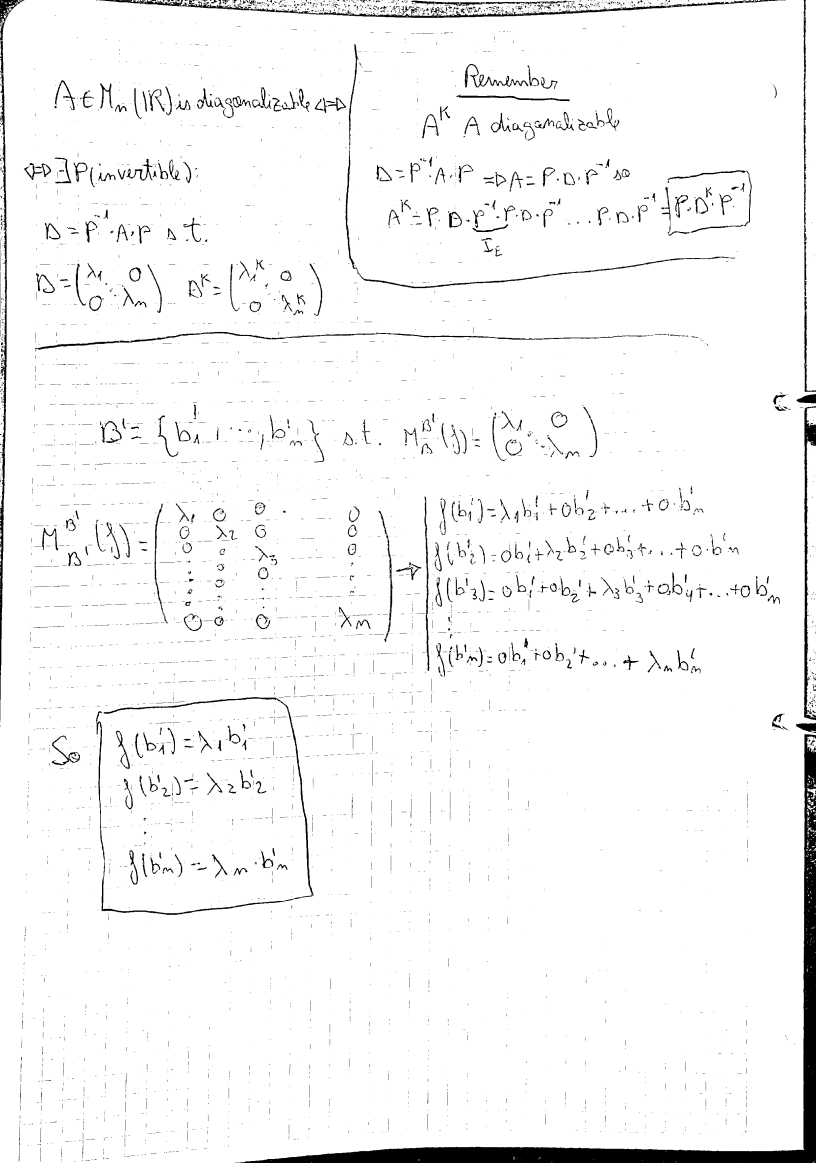 A ∈ M_n (ℝ) is diagonalizable ⇔
⇔ ∃ P (invertible):
D = P⁻¹·A·P s.t.
D = (λ₁ 0 ⋱ 0 λ_n) D^K = (λ₁^K 0 ⋱ 0 λ_n^K)
Remember
A^K A diagonalizable
D = P⁻¹·A·P ⇒ A = P·D·P⁻¹ so
A^K = P·D·P⁻¹·P·D·P⁻¹ ... P·D·P⁻¹ = P·D^K·P⁻¹
I_E
B' = {b'₁, ..., b'_n} s.t. M_B^B'(f) = (λ₁ 0 ⋱ 0 λ_n)
M_B'^B'(f) = (λ₁ 0 0 · 0
0 λ₂ 0 0
0 0 λ₃ 0
: 0 0 :
0 0 0 λ_n) →
f(b'₁) = λ₁b'₁ + 0b'₂ + ... + 0·b'_n
f(b'₂) = 0b'₁ + λ₂b'₂ + 0b'₃ + ... + 0·b'_n
f(b'₃) = 0b'₁ + 0b'₂ + λ₃b'₃ + 0b'₄ + ... + 0b'_n
⋮
f(b'_n) = 0b'₁ + 0b'₂ + ... + λ_n b'_n
So
f(b'₁) = λ₁b'₁
f(b'₂) = λ₂b'₂
⋮
f(b'_n) = λ_n·b'_n